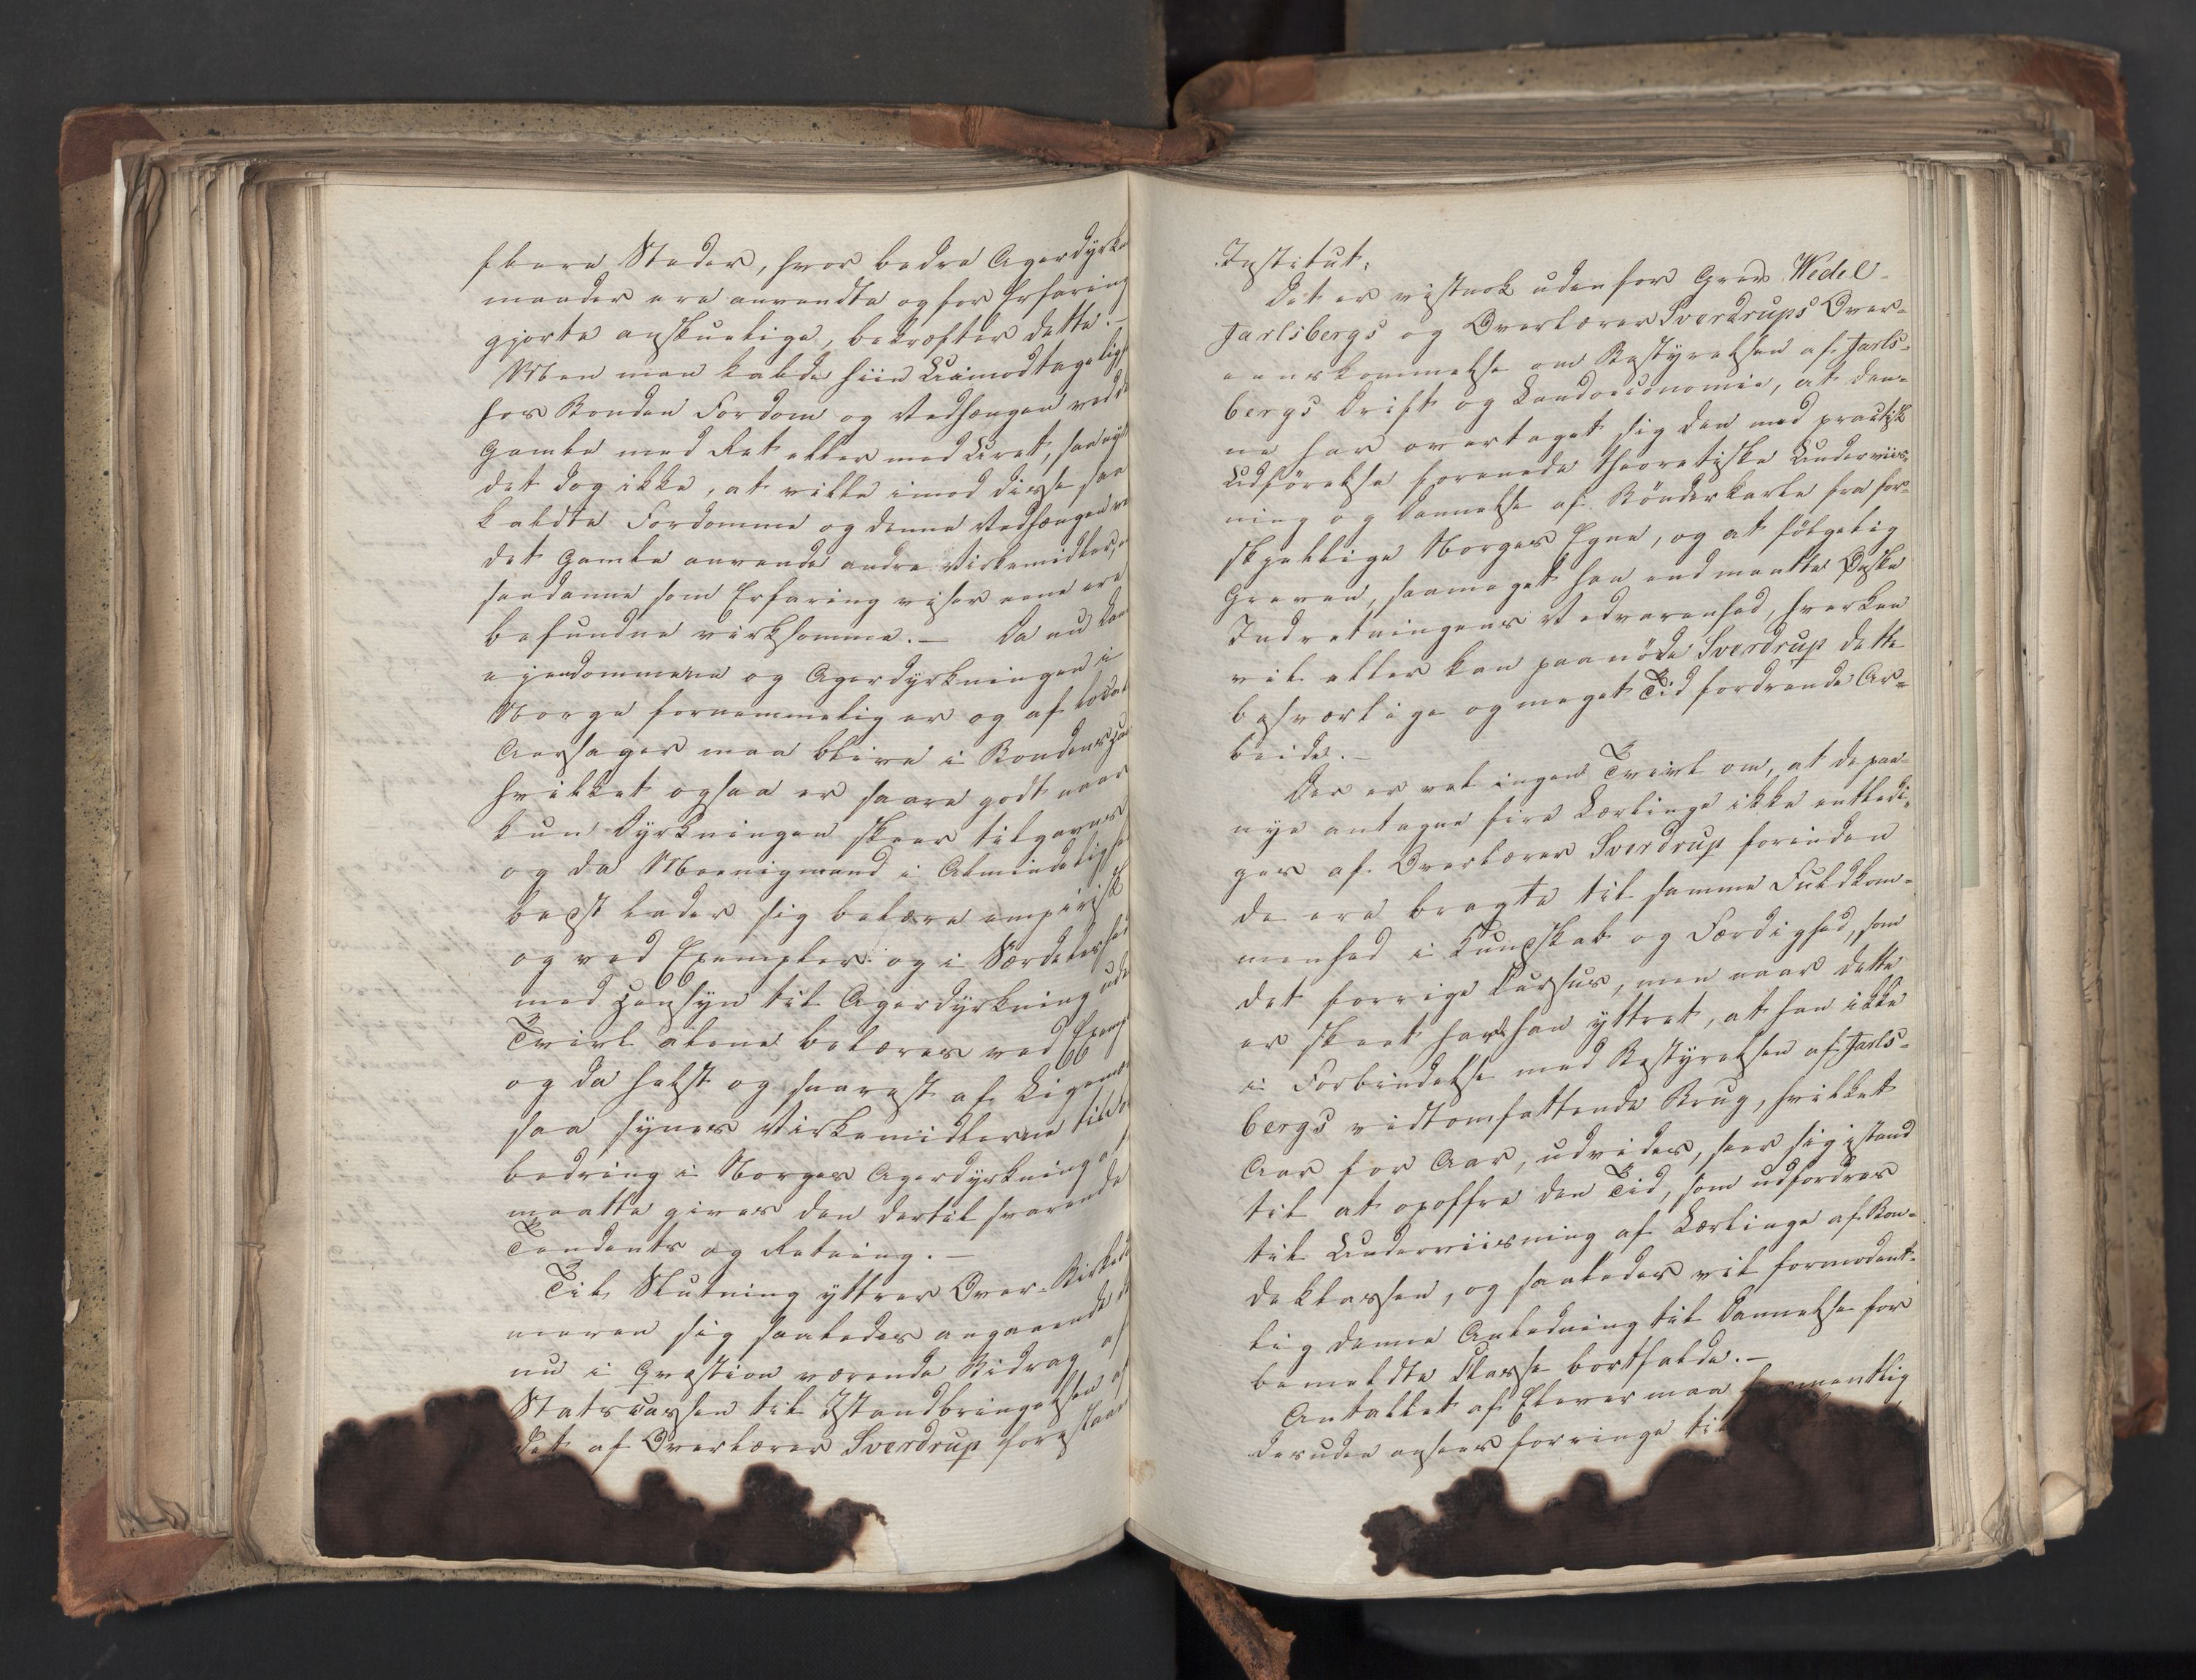 flere Steder, hvor bedre Agerdyrk
maader ere anvendte og for Erfaring
gjorte anskuelige, bekræfter dette. –
Men man kalde hiin Uimodtagelig
hos Bonden Fordom og Vedhængen ved de
Gamle med Ret eller med Uret, saa
det dog ikke, at ville imod disse saa
kaldte Fordomme og denne Vedhængen ve
det Gamle anvende andre Virkemidler,
saadanne som Erfaring viser ene ere
befundne virksomme. – Da nu
ejendommene og Agerdyrkningen i
Norge fornemmelig er og af local
Aarsager maa blive i Bondens
hvilket ogsaa er saare godt naar
kun Dyrkningen skeer tilgavns
og da Meenigmand i Almindelighe
bedst lader sig belære empirisk
og ved Exempler: og i Særdeleshed
med Hensyn til Agerdyrkning uden
Tvivl alene belæres ved Exemp
og da helst og snarest af Ligemæ
saa synes Virkemidlerne til For
bedring i Norges Agerdyrkning at
maatte gives den dertil svarende
Tendents og Retning. –
Til Slutning yttrer Over-Birke
meren sig saaledes angaaende de
nu i Qvæstion værende Bidrag af
Statscassen til Istandbringelsen af
det af Overlærer Sverdrup forestaae
Institut:
Det er vistnok udenfor Grev Wedel
Jarlsbergs og Overlærer Sverdrups Over-
eenskommelse om Bestyrelsen af Jarls-
bergs Drift og Landoeconomie, at den-
ne har overtaget sig den med practisk
Udførelse forenede theoretiske Underviis-
ning og Dannelse af Bønderkarle fra for-
skjellige Norges Egne, og at følgelig
Greven, saameget han end maatte ønske
Indretningens Vedvarenhed, hverken
vil eller kan paanøde Sverdrup dette
besværlige og meget Tid fordrende Ar-
beide. –
Der er vel ingen Tvivl om, at de paa-
nye antagne fire Lærlinge ikke entledi-
ges af Overlærer Sverdrup forinden
de ere bragte til samme Fuldkom-
menhed i Kundskab og Færdighed, som
det forrige Cursus, men naar dette
er skeet har han yttret, at han ikke
i Forbindelse med Bestyrelsen af Jarls-
bergs vidtomfattende Brug, hvilket
Aar for Aar, udvides, seer sig istand
til at opoffre den Tid, som udfordres
til Underviisning af Lærlinge af Bon-
deklassen, og saaledes vil formodent-
lig denne Anledning til Dannelse for
bemeldte Classe bortfalde. –
Antallet af Elever maa mentlig
desuden ansees for ringe til